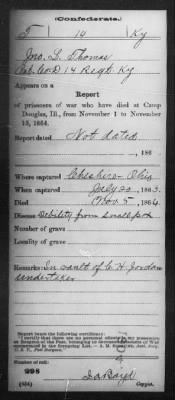 (Confederate.)
T 14 Ky
Jno. L. Thomas
Co. D 14 Regt. Ky
Appears on a
Report
of prisoners of war who have died at Camp
Douglas, Ill., from November 1 to November
15, 1864.
Report dated Not dated
, 186
Where captured Cheshire Ohio
When captured July 20, 1863.
Died Nov. 5, 1864.
Disease Debility from Small pox
Number of grave
Locality of grave
Remarks: In vault of C. H. Jordan
undertaker
Report bears the following certificate:
Number of roll:
298
(654) Copyist.